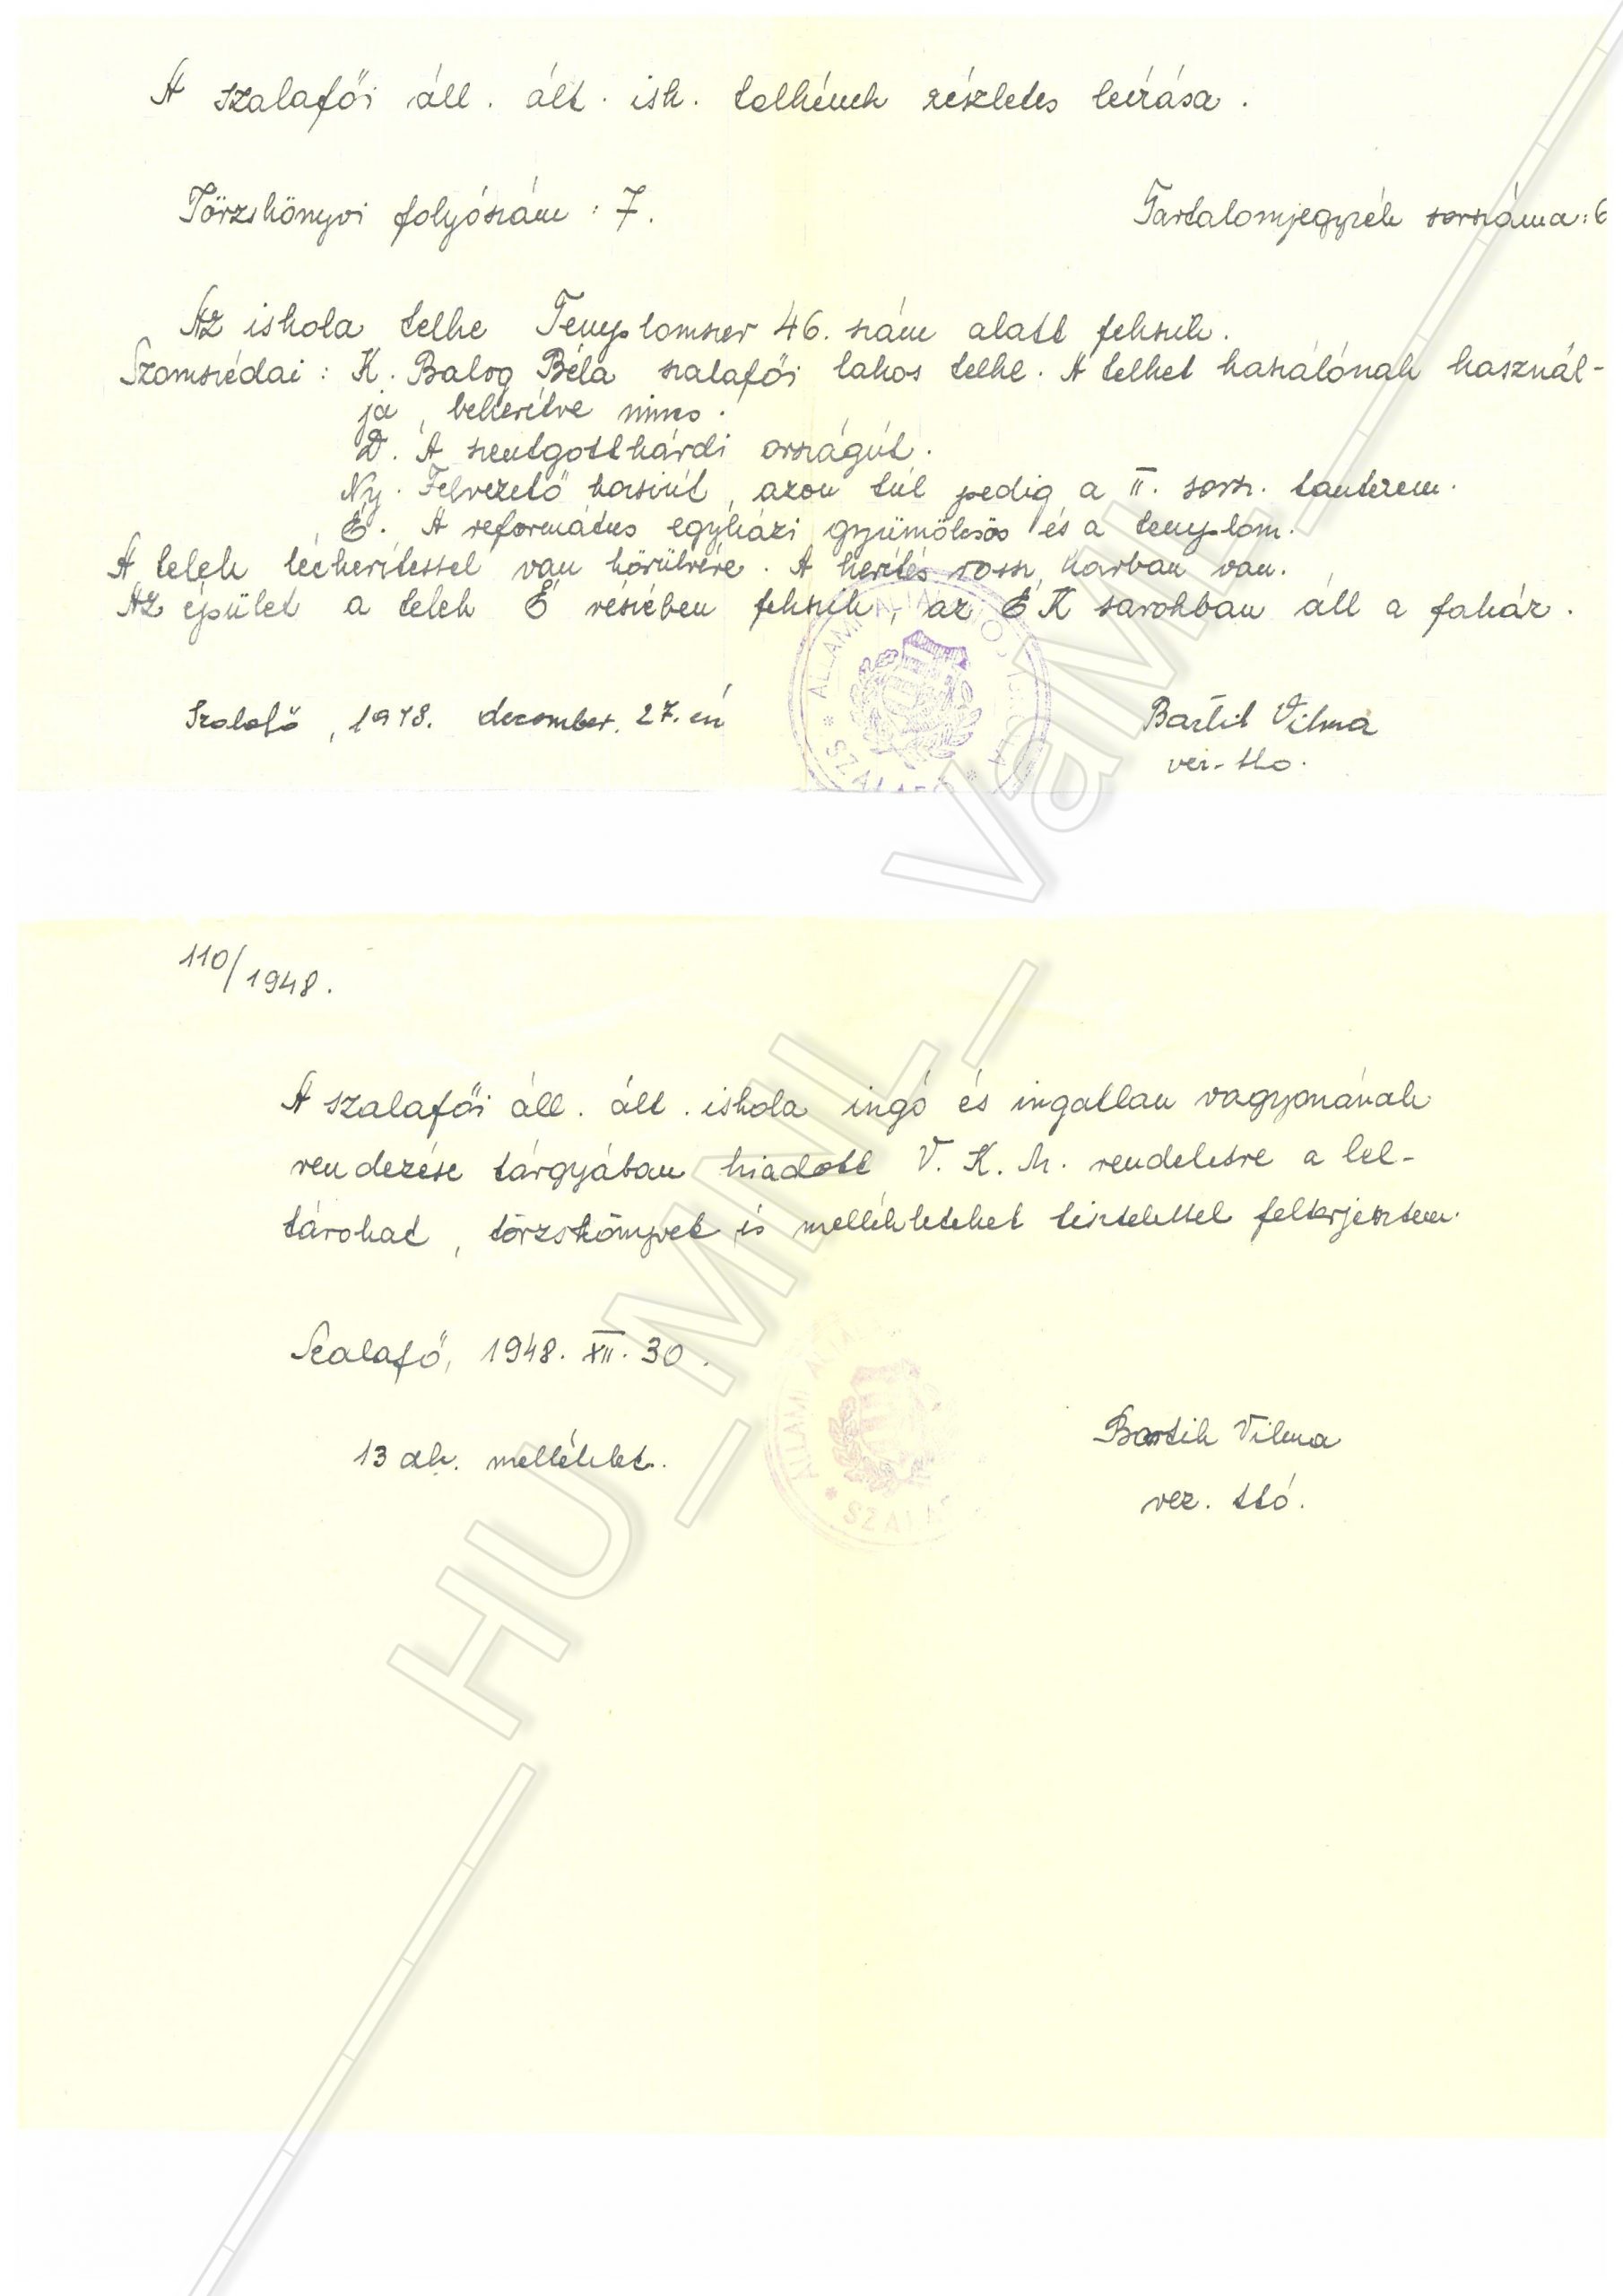 A szalafői áll. ált. isk. telkének részletes leírása.
Törzskönyvi folyószám: 7.
Tartalomjegyzék sorszáma: 6
Az iskola telke Templomszer 46. szám alatt fekszik.
Szomszédai: K. Balog Béla szalafői lakos telke. A telket kaszálónak használ-
ja, bekerítve nincs.
D. A szentgotthárdi országút.
Ny. Felvezető kocsiút, azon túl pedig a II. sorsz. tanterem.
É. A református egyházi gyümölcsös és a templom.
A telek léckerítéssel van körülvéve. A kerítés rossz karban van.
Az épület a telek É részében fekszik, az ÉK sarokban áll a faház.
Szalafő, 1948. december. 27.-én
ÁLLAMI ÁLTALÁNOS ISKOLA * SZALAFŐ *
Bartik Vilma
vez. ttó.
110/1948.
A szalafői áll. ált. iskola ingó és ingatlan vagyonának
rendezése tárgyában kiadott V. K. M. rendeletre a lel-
tárokat, törzskönyvet és mellékleteket tisztelettel felterjesztem.
Szalafő, 1948. XII. 30.
13 db. melléklet.
Bartik Vilma
vez. ttó.
HU_MNL_VaML_